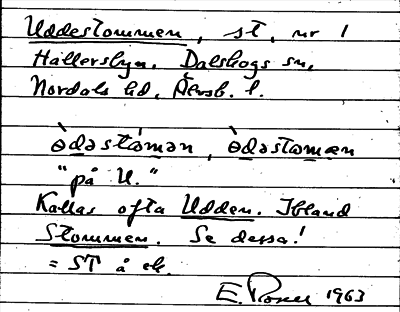 Uddestommen, st, nr 1
Hällersbyn. Dalskogs sn,
Nordals hd, Älvsb. l.
ə̀dəstámən, ə̀dəstəmæn
"på U."
Kallas ofta Udden. Ibland
Stommen. Se dessa!
= ST å ek.
E. 1963